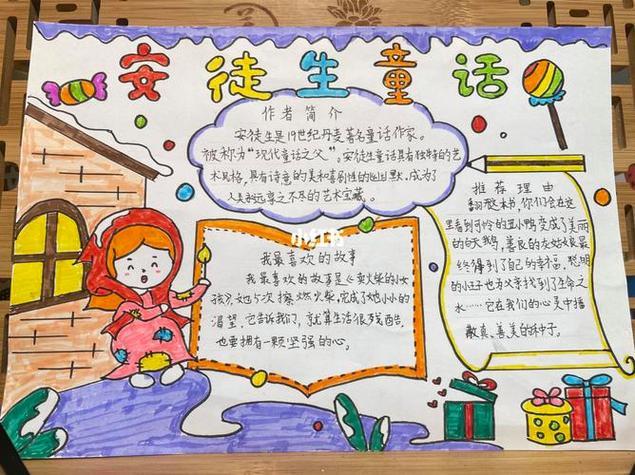 安徒生童话
作者简介
安徒生是19世纪丹麦著名童话作家。
被称为“现代童话之父”。安徒生童话具有独特的艺
术风格，具有诗意的美和喜剧性的幽默，成为了
人类永远享之不尽的艺术宝藏。
小红书
我最喜欢的故事
我最喜欢的故事是《卖火柴的小女
孩》，她5次擦燃火柴，完成了她小小的
渴望。它告诉我们，就算生活很残酷，
也要拥有一颗坚强的心。
推荐理由
翻开本书，你们会在这
里看到可怜的丑小鸭变成了美丽
的白天鹅，善良的姑娘最
终得到了自己的幸福，聪明
的小王子也为父亲找到了生命之
水……它在我们的心灵中播
散真、善、美的种子。